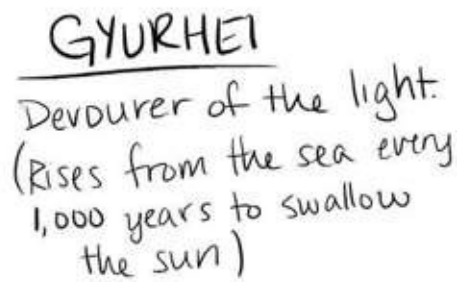 GYURHEI
Devourer of the light.
(Rises from the sea every
1,000 years to swallow
the sun)